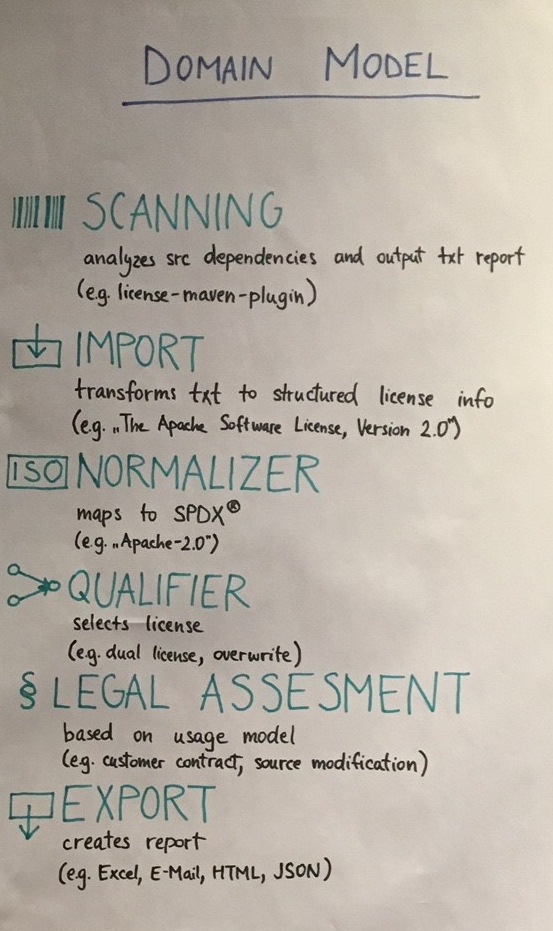 DOMAIN MODEL
SCANNING
analyzes src dependencies and output txt report
(e.g. license-maven-plugin)
IMPORT
transforms txt to structured license info
(e.g. „The Apache Software License, Version 2.0”)
ISO NORMALIZER
maps to SPDX®
(e.g. „Apache-2.0”)
QUALIFIER
selects license
(e.g. dual license, overwrite)
§ LEGAL ASSESMENT
based on usage model
(e.g. customer contract, source modification)
EXPORT
creates report
(e.g. Excel, E-Mail, HTML, JSON)